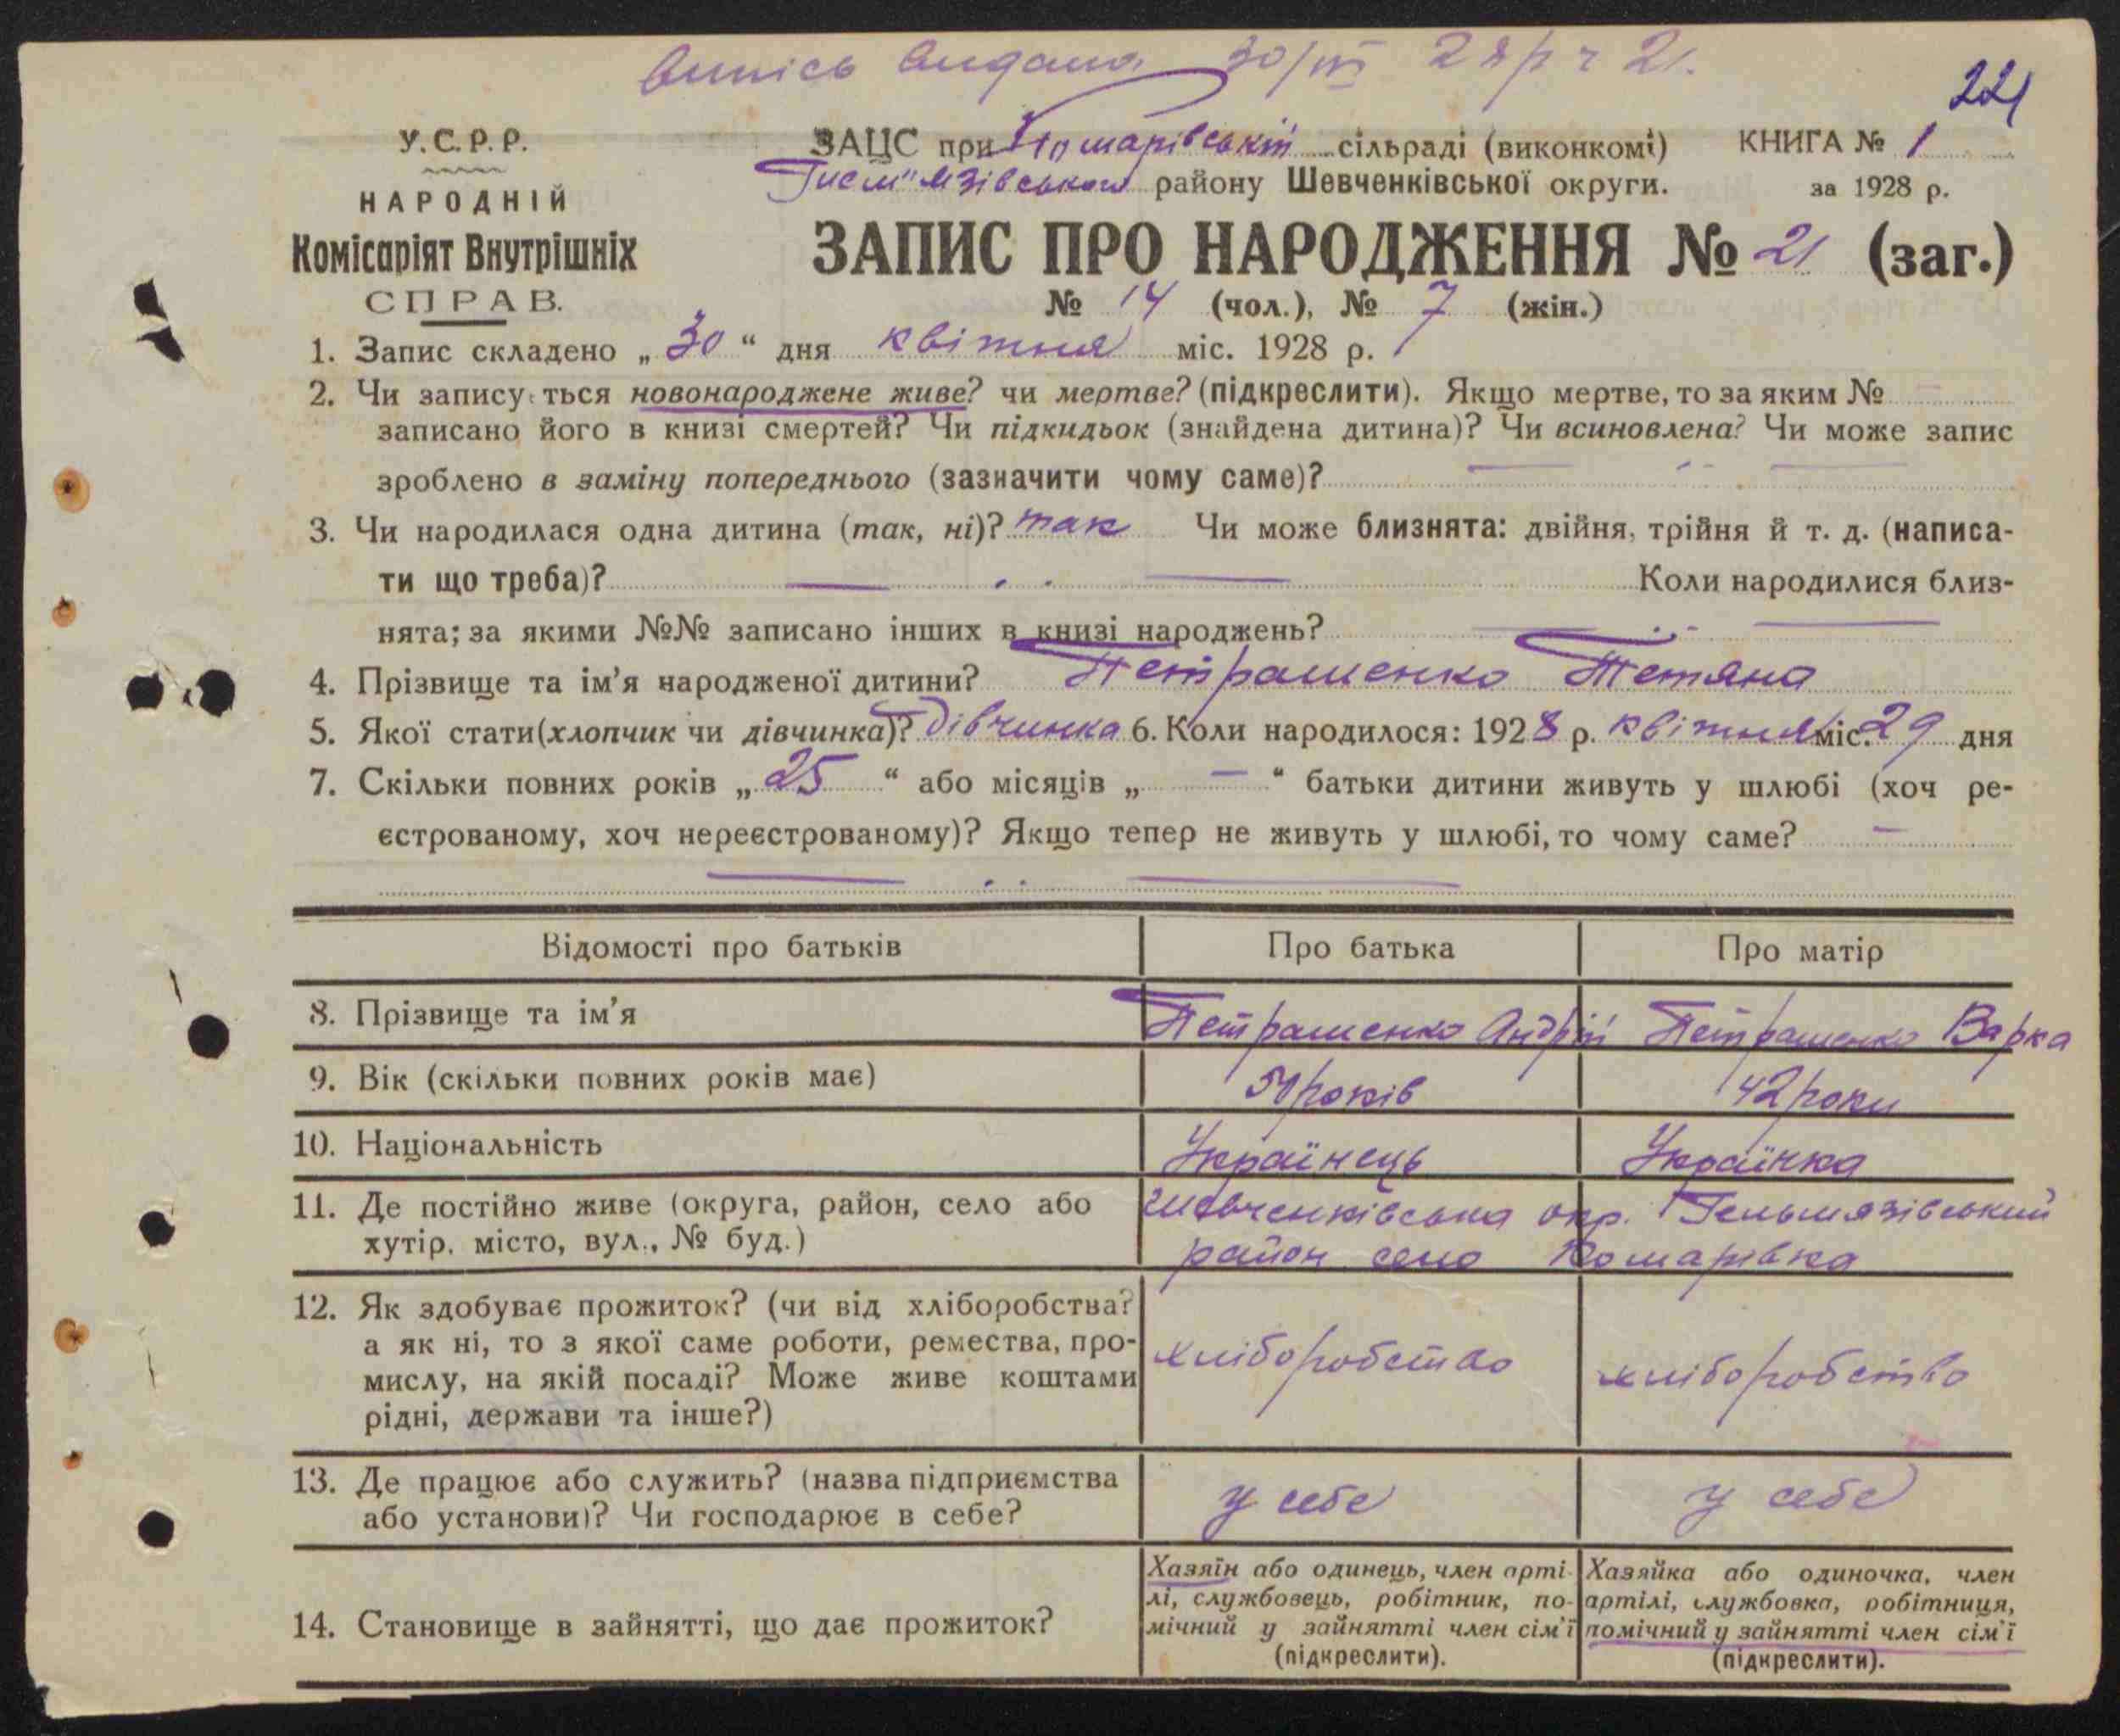 Випісь видана 30/IV 28 р ч 21.
221
У.С.Р.Р.
НАРОДНІЙ
Комісаріят Внутрішніх
СПРАВ.
ЗАЦС при Комарівській сільраді (виконкомі)
районy Шевченківської округи.
КНИГА № 1
за 1928 р.
ЗАПИС ПРО НАРОДЖЕННЯ № 21 (заг.)
№ 14 (чол.), № 7 (жін.)
1. Запис складено „ 30 “ дня квітня міс. 1928 р.
2. Чи записується новонароджене живе? чи мертве? (підкреслити). Якщо мертве, то за яким № —
записано його в книзі смертей? Чи підкидьок (знайдена дитина)? Чи всиновлена? Чи може запис
зроблено в заміну попереднього (зазначити чому саме)?
3. Чи народилася одна дитина (так, ні)? так Чи може близнята: двійня, трійня й т. д. (написа-
ти що треба)? Коли народилися близ-
нята; за якими №№ записано інших в книзі народжень?
4. Прізвище та ім’я народженої дитини? Петрашенко Тетяна
5. Якої стати (хлопчик чи дівчинка)? Дівчинка 6. Коли народилося: 1928 р. квітня міс. 29 дня
7. Скільки повних років „ 25 “ або місяців „ — “ батьки дитини живуть у шлюбі (хоч ре-
єстрованому, хоч нереєстрованому)? Якщо тепер не живуть у шлюбі, то чому саме? —
Відомості про батьків Про батька Про матір
8. Прізвище та ім’я Петрашенко Андрій Петрашенко Варка
9. Вік (скільки повних років має) років 42 роки
10. Національність Українець Українка
11. Де постійно живе (округа, район, село або Шевченківська окр. Гельмязівський
хутір, місто, вул., № буд.) район село Комарівка
12. Як здобуває прожиток? (чи від хліборобства?
а як ні, то з якої саме роботи, ремества, про-
мислу, на якій посаді? Може живе коштами
рідні, держави та інше?)
хліборобство хліборобство
13. Де працює або служить? (назва підприємства
або установи)? Чи господарює в себе?
у себе у себе
14. Становище в зайнятті, що дає прожиток?
Хазяїн або одинець, член арті-
лі, службовець, робітник, по-
мічний у зайнятті член сім’ї
(підкреслити).
Хазяйка або одиночка, член
артілі, службовка, робітниця,
помічний у зайнятті член сім’ї
(підкреслити).